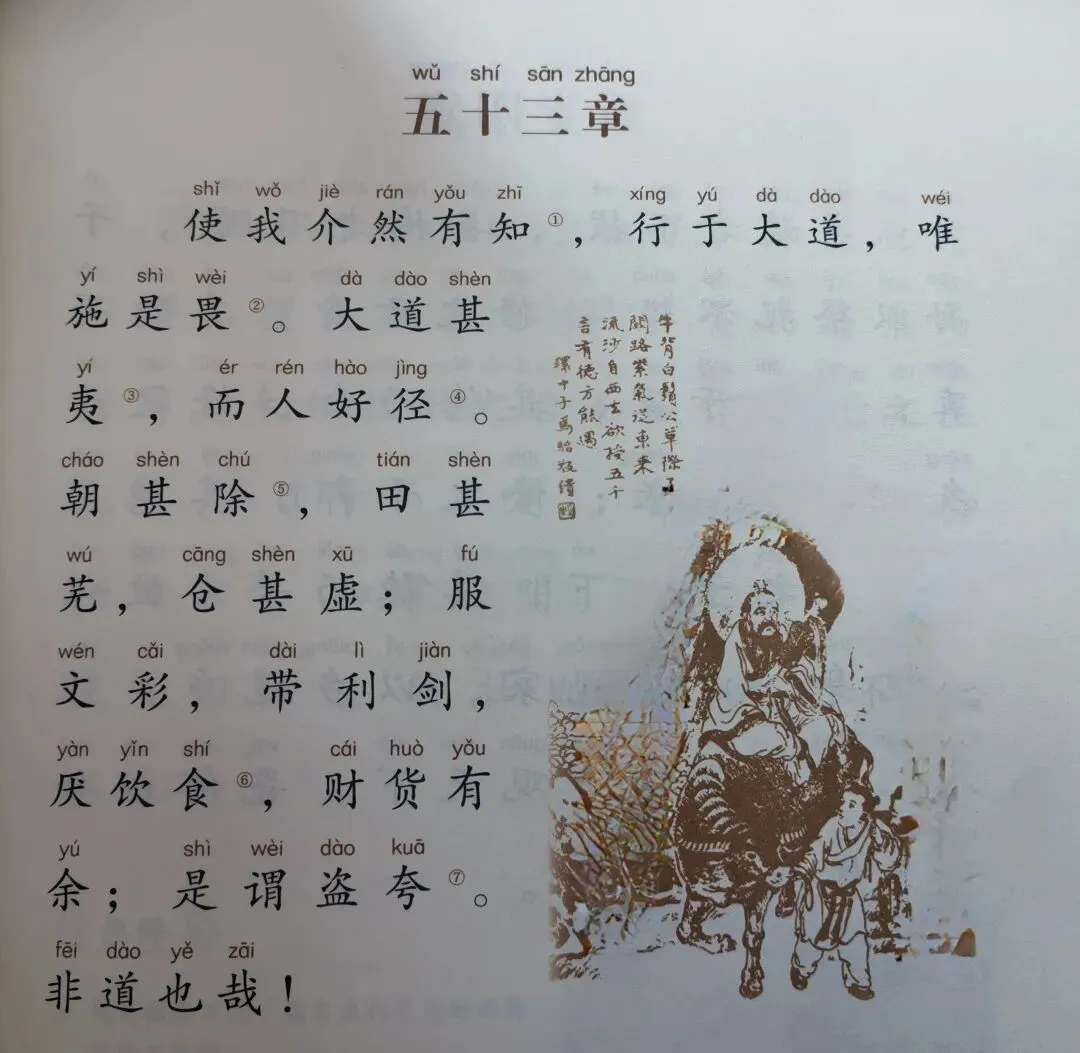 wǔ shí sān zhāng
五十三章
shǐ wǒ jiè rán yǒu zhī xíng yú dà dào wéi
使我介然有知①，行于大道，唯
yí shì wèi dà dào shèn
施是畏②。大道甚
yí ér rén hào jìng
夷③，而人好径④。
cháo shèn chú tián shèn
朝甚除⑤，田甚
wú cāng shèn xū fú
芜，仓甚虚；服
wén cǎi dài lì jiàn
文彩，带利剑，
yàn yǐn shí cái huò yǒu
厌饮食⑥，财货有
yú shì wèi dào kuā
余；是谓盗夸⑦。
fēi dào yě zāi
非道也哉！
牛背白鬚公草際
關路紫氣從東來
流沙自西去欲授五千
言有德方能遇